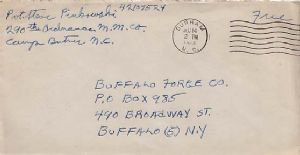 Pvt. 42107524
290th Ordnance M.M. Co.
Camp Butner N.C.
DURHAM
2 PM
N.C.
Free
BUFFALO FORGE CO.
P.O BOX 985
490 BROADWAY ST.
BUFFALO (5) N.Y